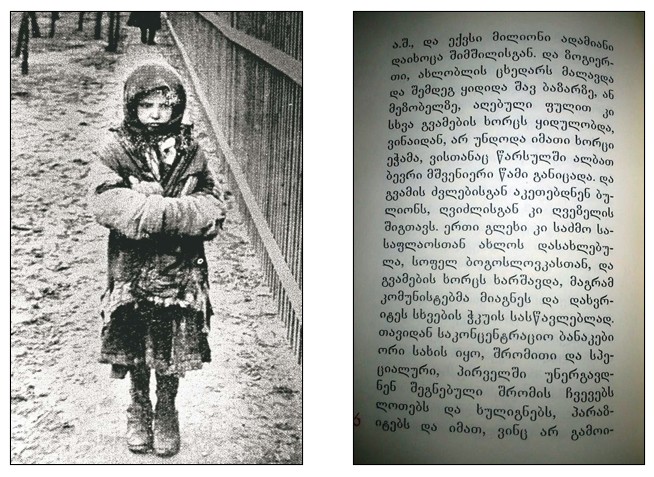 ა.შ., და ექვსი მილიონი ადამიანი
დაიხოცა შიმშილისგან. და ზოგიერ-
თი, ახლობლის ცხედარს მალავდა
და შემდეგ ყიდიდა შავ ბაზარზე, ან
მეზობელზე, აღებული ფულით კი
სხვა გვამების ხორცს ყიდულობდა,
ვინაიდან, არ უნდოდა იმათი ხორცი
ეჭამა, ვისთანაც წარსულში ალბათ
ბევრი მშვენიერი წამი განიცადა. და
გვამის ძვლებისგან აკეთებდნენ ბუ-
ლიონს, ღვიძლისგან კი ღვეზელის
შიგთავს. ერთი გლეხი კი საძმო სა-
საფლაოსთან ახლოს დასახლებუ-
ლა, სოფელ ბოგოსლოვკასთან, და
გვამების ხორცს ხარშავდა, მაგრამ
კომუნისტებმა მიაგნეს და დახვრ-
იტეს სხვების ჭკუის სასწავლებლად.
თავიდან საკონცენტრაციო ბანაკები
ორი სახის იყო, შრომითი და სპე-
ციალური, პირველში უნერგავდ-
ნენ შეგნებული შრომის ჩვევებს
ლოთებს და ხულიგნებს, პარაზ-
იტებს და იმათ, ვინც არ გამოი-